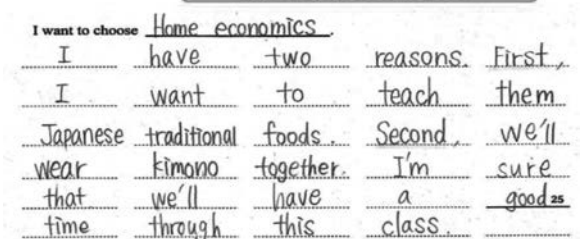 I want to choose Home economics.
I have two reasons. First,
I want to teach them
Japanese traditional foods. Second, we'll
wear kimono together. I'm sure
that we'll have a good 25
time through this class.